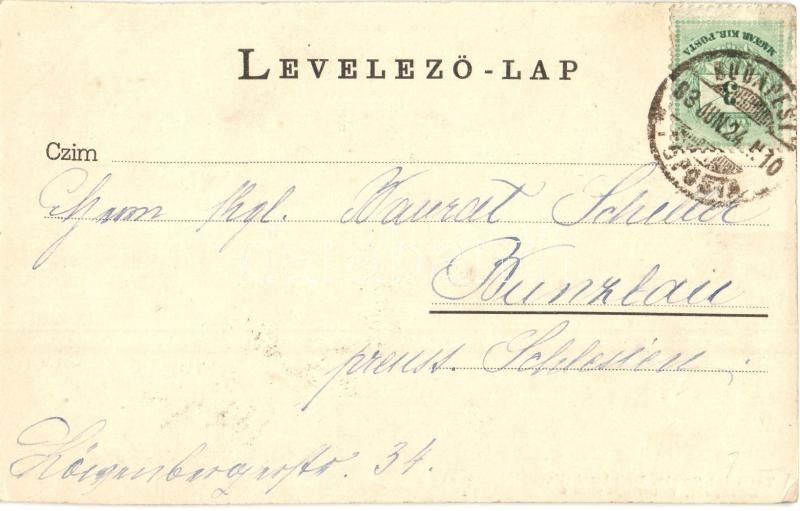 LEVELEZŐ-LAP
MAGYAR KIR. POSTA
3
BUDAPEST
93 JUN. 24. N10
FŐPOSTA
Czim
Herrn Kgl. Baurat Scheller
Bunzlau
preuss. Schlesien.
Löwenbergerstr. 34.